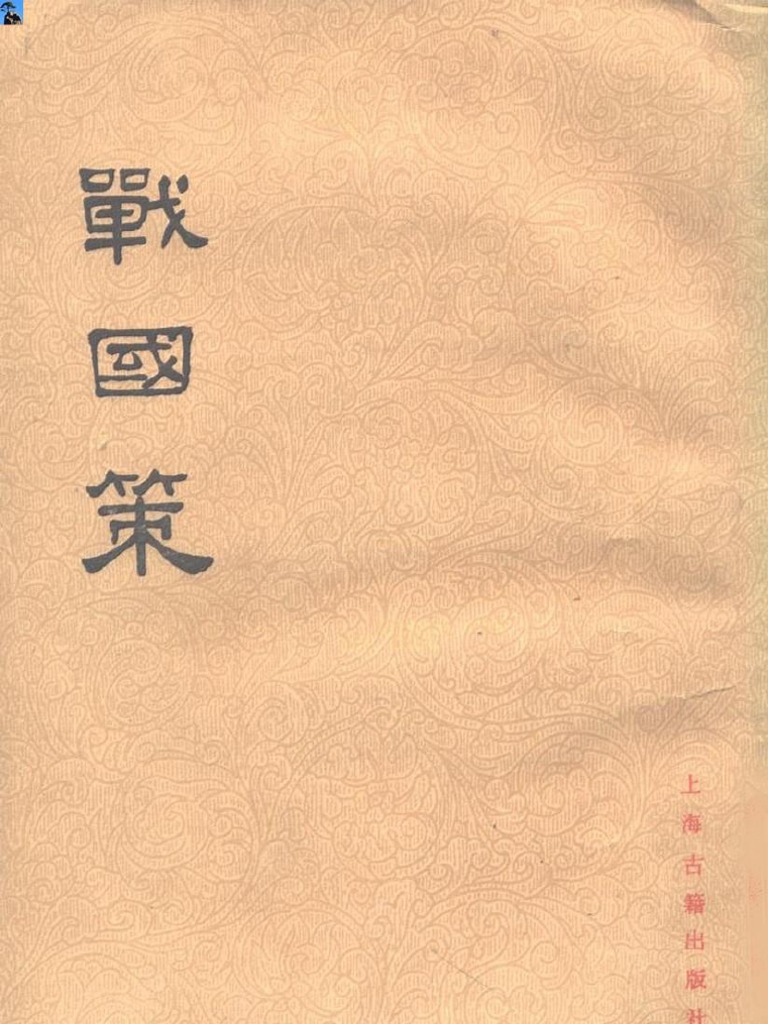 戰國策
上海古籍出版社